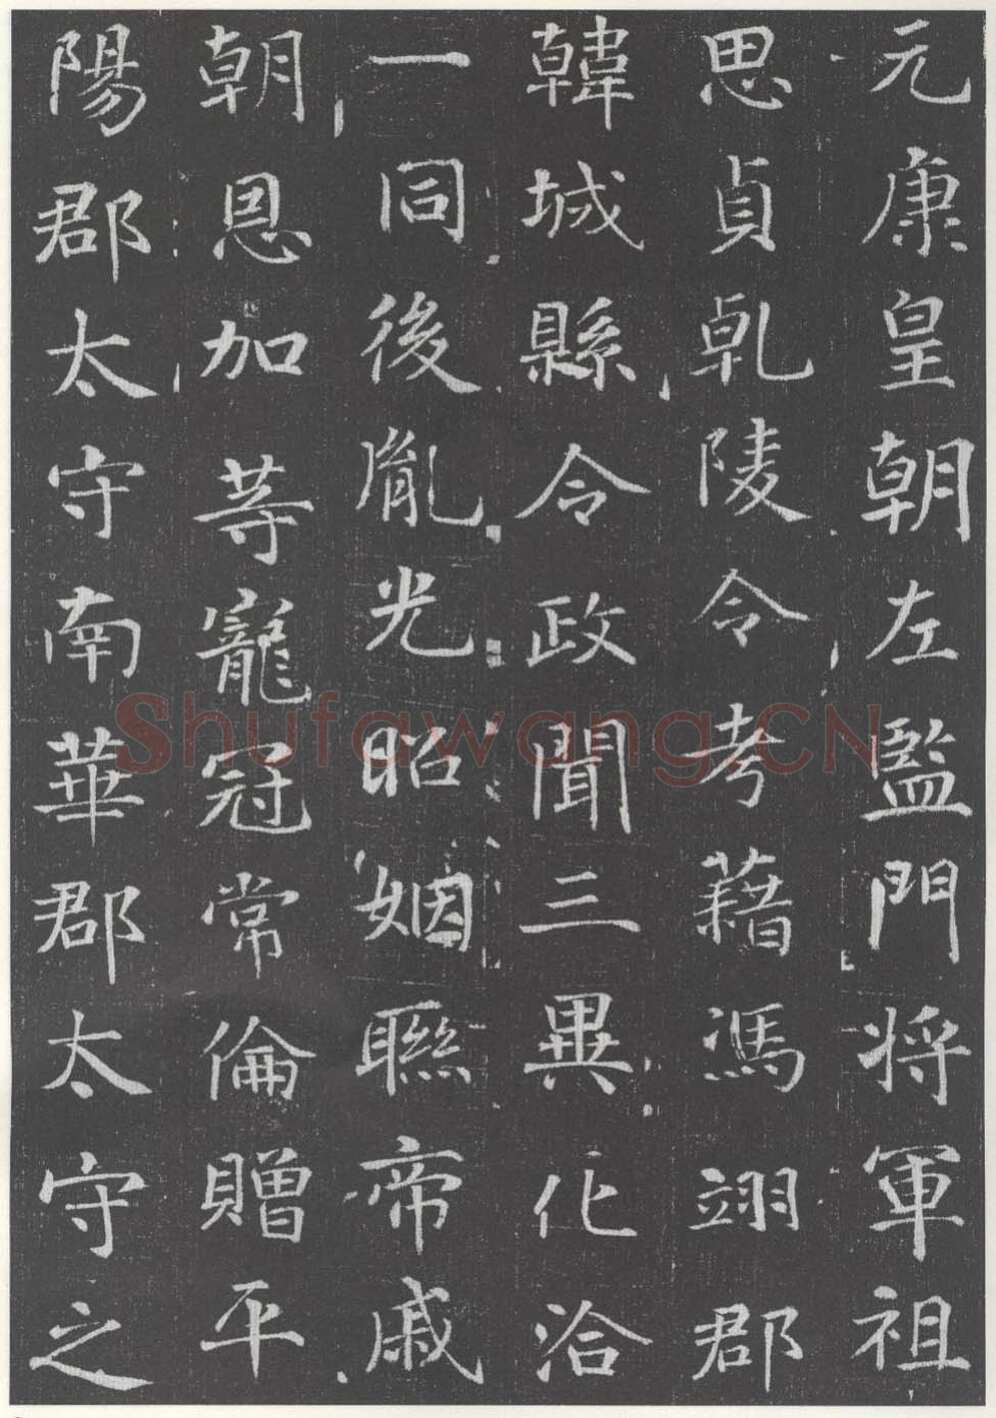 元康皇朝左監門将軍祖
思貞乹陵令考藉馮翊郡
韓城縣令政聞三異化洽
一同後胤光昭姻聯帝戚
朝恩加等寵冠常倫贈平
陽郡太守南華郡太守之
Shufawang.CN